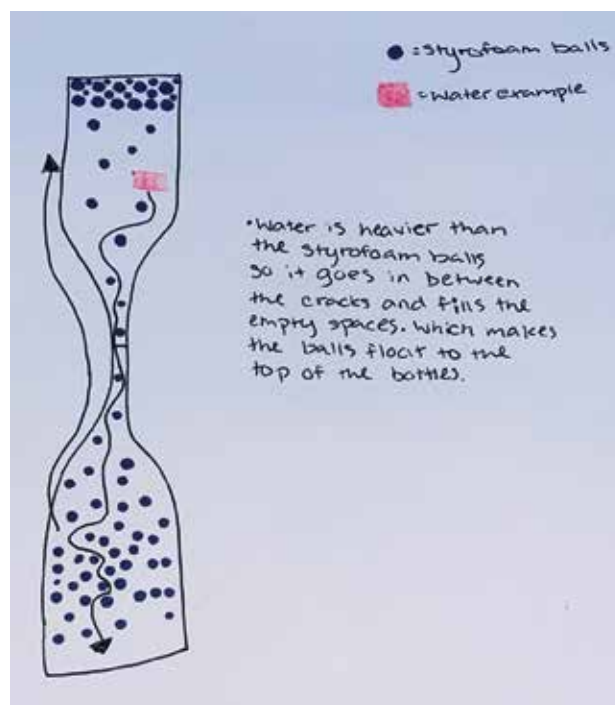 = styrofoam balls
= water example
• Water is heavier than
the styrofoam balls
so it goes in between
the cracks and fills the
empty spaces. Which makes
the balls float to the
top of the bottles.